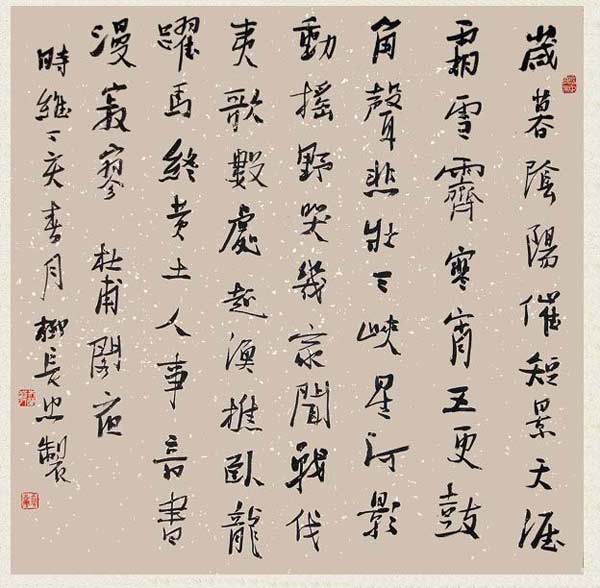 歲暮陰陽催短景天涯
霜雪霽寒宵五更鼓
角聲悲壯三峽星河影
動搖野哭幾家聞戰伐
夷歌數處起漁樵臥龍
躍馬終黃土人事音書
漫寂寥 杜甫閣夜
時維丁亥春月柳長忠製